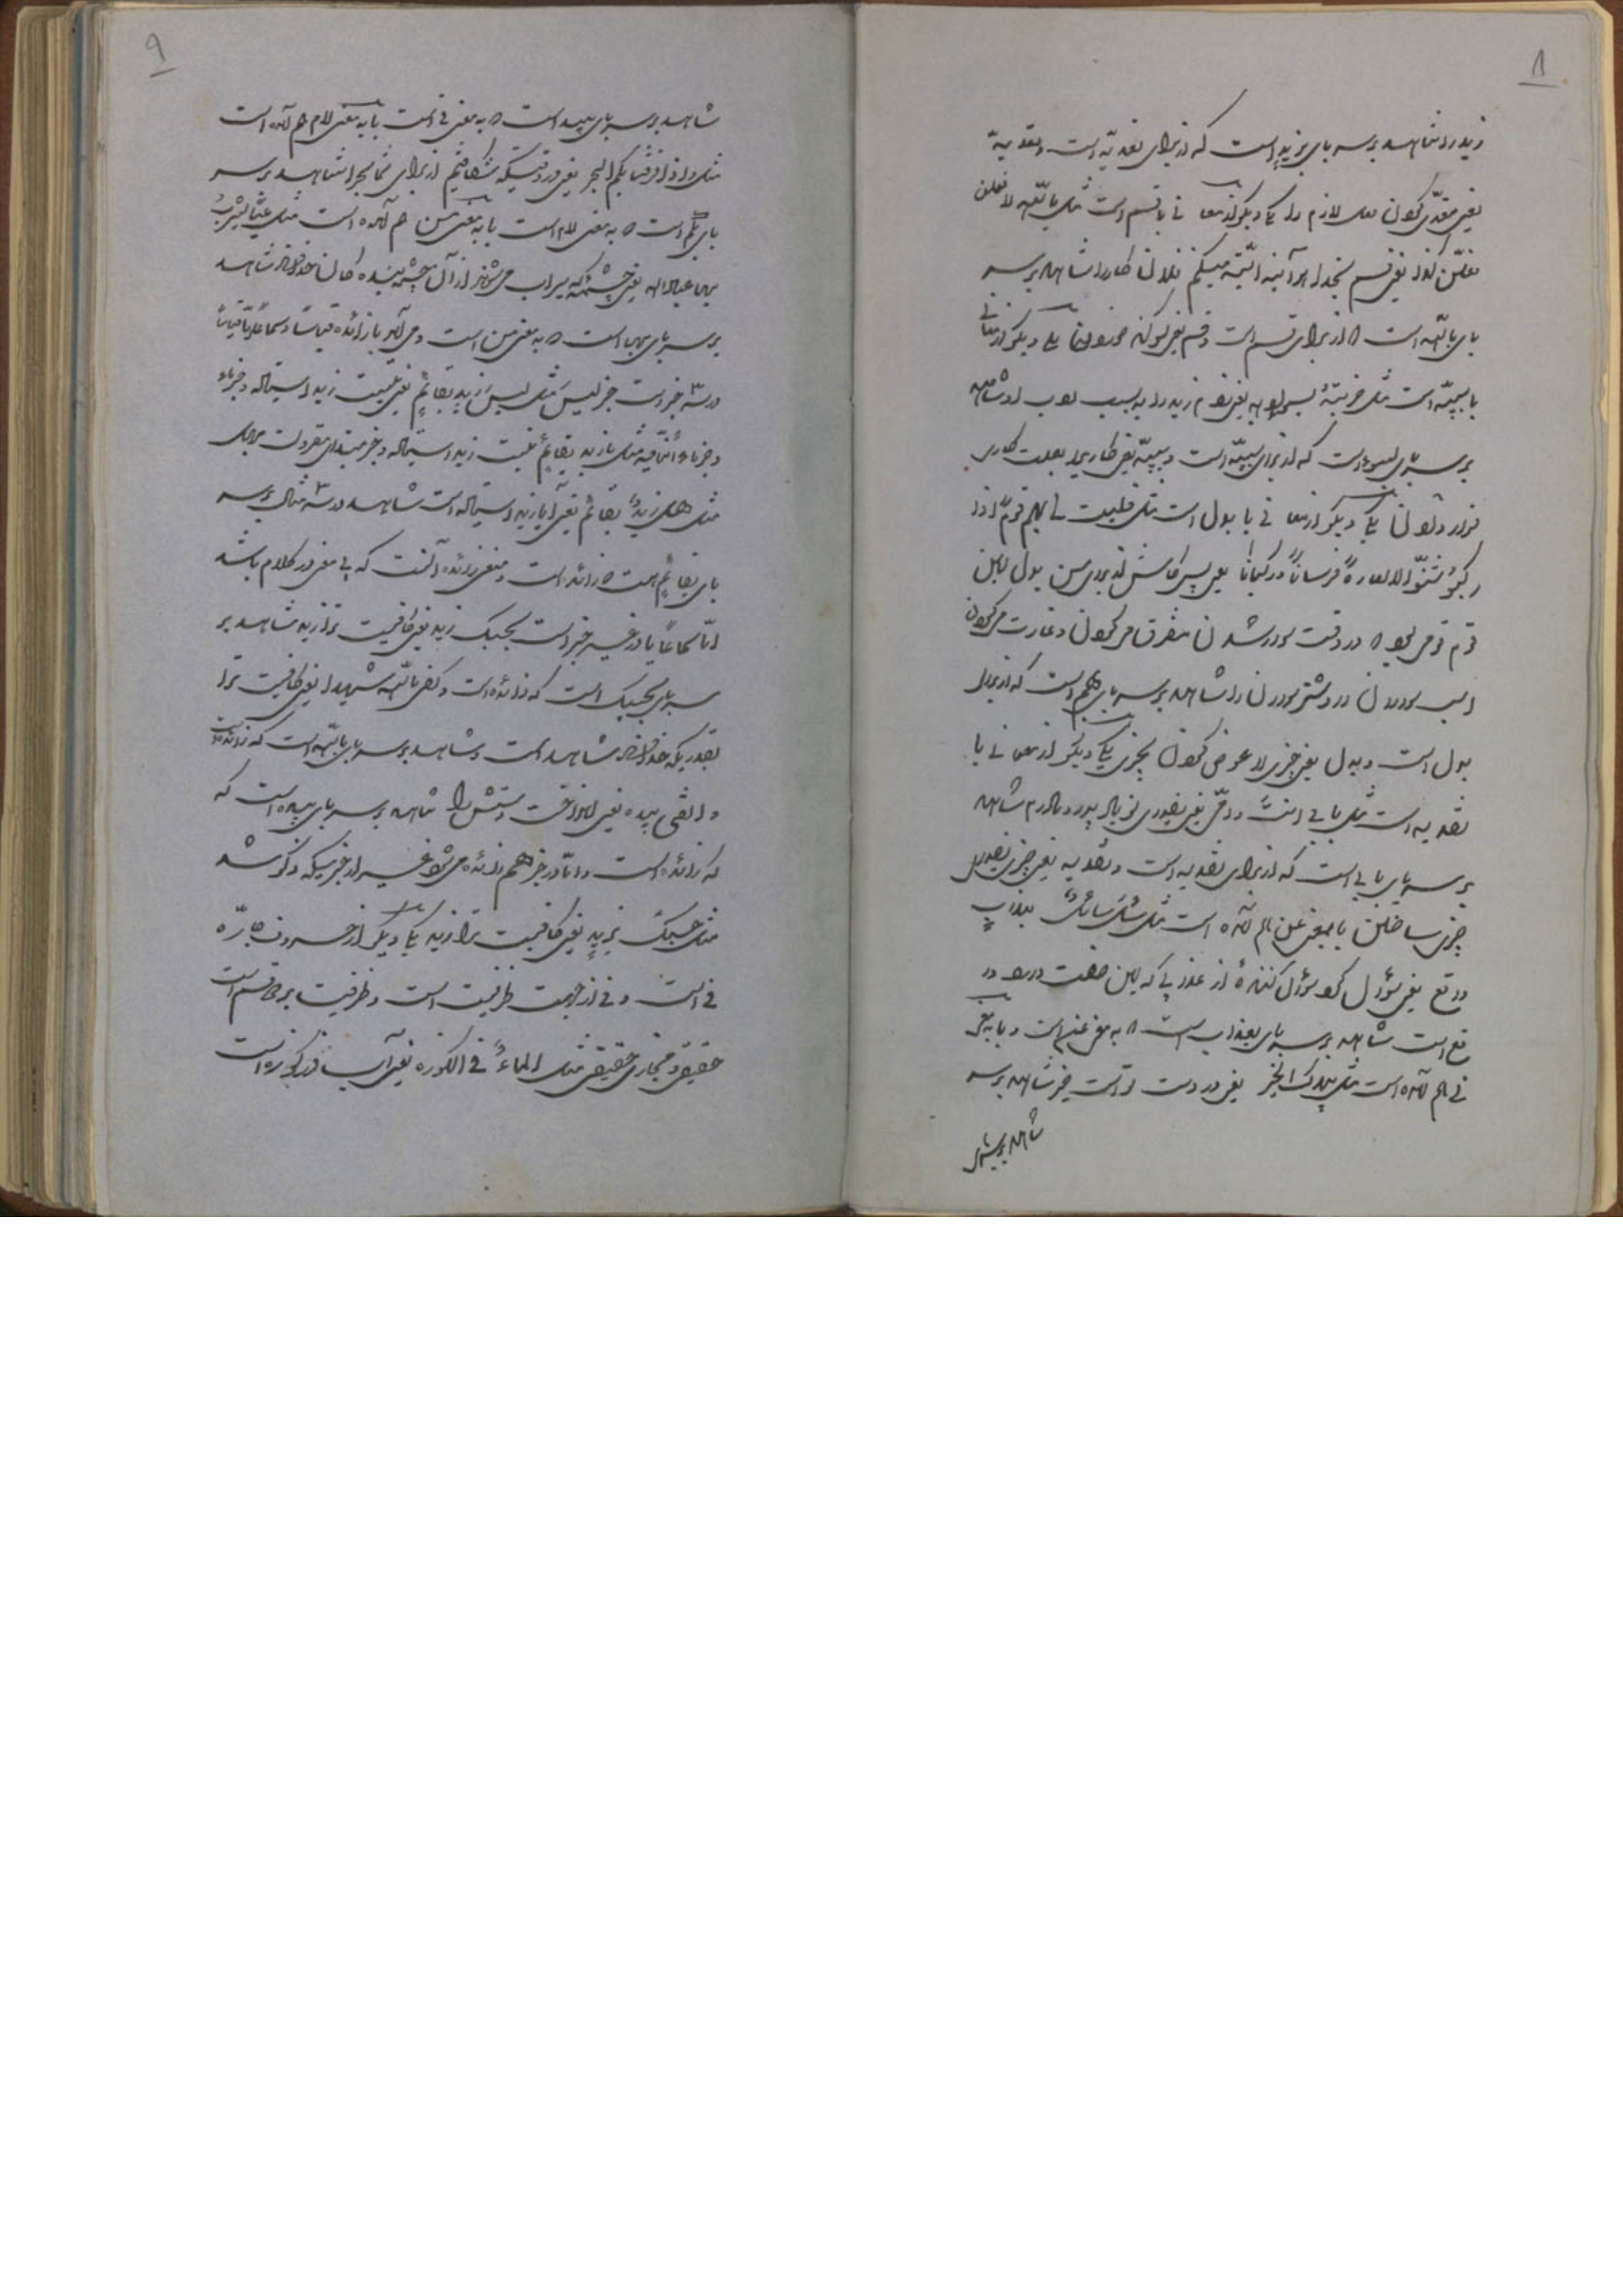 ۸
زید را شاهد بر سر بای بزیدٍ است که از برای تعدیّه است و تعدیه
یعنی متعدّی کردن فعل لازم را یکی دیگر از معانی با قسم است مثل باللّه لافعلن
کذا یعنی قسم بخدا هر آینه البتّه میکنم فلان کار را شاهد بر سر
بای باللّه است که از برای قسم است و قسم یعنی سوگند خوردن یکی دیگر از معانی
با سببیّه است مثل ضربتهُ یعنی زدم زید را به سبب ادب شاهد
بر سر بای است که از برای سببیّه است و سببیّه یعنی
یکی دیگر از معانی با بدل است مثل فلیت لی بهم قوماً اذا
رکبوا شنّوا الاغارة فرساناً و رکباناً یعنی پس کاش از برای من بدل این
قوم قومی بود که در وقت سوار شدن متفرق میکردن و غارت میکردن
اسب سواران و شتر سواران را شاهد بر سر بای بهم است که از برای
بدل است و بدل یعنی چیزی را عوض کردن بچیزی یکی دیگر از معانی با
تفدیه است مثل بابی انت و امّی یعنی فدای تو باد پدر و مادرم شاهد
بر سر بای بابی است که از برای تفدیه است و تفدیه یعنی چیزی فدای
چیزی ساختن با بمعنی عن هم آمده است مثل سئل سائلٌ بعذابٍ
واقع یعنی سؤال کرد سؤال کنندهٔ از عذابی که این صفت دارد
واقع است شاهد بر سر بای بعذاب است که به معنی عن است و با به معنی
فی هم آمده است مثل بیدک الخیر یعنی در دست تو است خیر شاهد بر سر
شاهد بر سر
۹
شاهد بر سر بای بید است که به معنی فی است با به معنی لام هم آمده است
مثل و اذ فرقنا بکم البحر یعنی در وقتیکه شکافتیم از برای شما بحر را شاهد بر سر
بای بکم است که به معنی لام است با به معنی من هم آمده است مثل عیناً یشرب
بها عباد الله یعنی چشمه که سیراب می شوند از آن چشمه بنده کان خدا شاهد
بر سر بای بها است که به معنی من است و می آید با زائده قیاساً و سماعاً امّا قیاساً
در سه خبر است خبر لیس مثل لیس زید بقائمٍ یعنی نیست زید ایستاده و خبر ماء
و خبر ماء نافیه مثل ما زید بقائمٍ نیست زید ایستاده و خبر مبتدای مقرون بهل
مثل هل زیدٌ بقائم یعنی آیا زید ایستاده است شاهد در سه مثال بر سر
بای بقائمٍ است که زائد است و معنی زائده آنست که بی معنی در کلام باشد
امّا سماعاً یا در غیر خبر است بحسبک زید یعنی کافیست ترا زید شاهد بر
سر بای بحسبک است که زائده است و کفی باللّه شهیدا یعنی کافیست ترا
شاهد است و شاهد بر سر بای باللّه است که زائده است
و القی بیده یعنی انداخت دستش را شاهد بر سر بای بیده است که
که زائده است و امّا در خبر هم زائده می شود غیر از خبریکه ذکر شد
مثل حسبک بزیدٍ یعنی کافیست ترا زید یکی دیگر از حروف جارّه
فی است و فی از جهت ظرفیت است و ظرفیت بر دو قسم است
حقیقی و مجازی حقیقی مثل الماءُ فی الکوزه یعنی آب در کوزه است